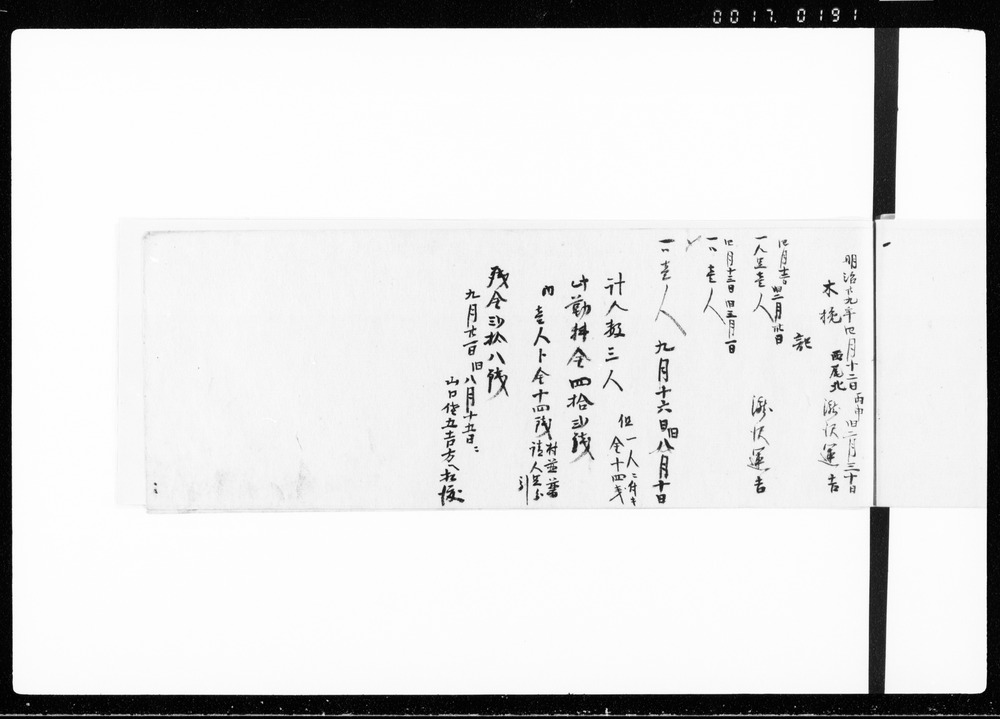 0017.0191
明治廿九年四月十二日丙申旧二月三十日
木挽 西尾北 瀧沢運吉
記
四月十二日 旧二月卅日
一人足壱人 瀧沢運吉
四月十三日 旧三月一日
一〃壱人
一〃壱人 九月十六日旧八月十日
計人数三人 但一人ニ付キ金十四戋
此勤料金四拾弐銭
内壱人ト金十四銭 村並 請人足 引
残金弐拾八銭
九月廿一日旧八月十五日ニ
山口 五吉方へ相渡